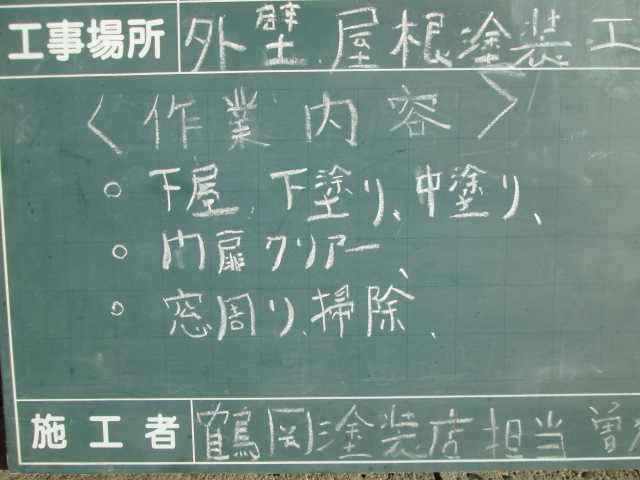 工事場所 外壁、屋根塗装工
〈作業内容〉
○ 下屋、下塗り、中塗り、
○ 門扉クリアー、
○ 窓周り、掃除、
施工者 鶴岡塗装店 担当 曽